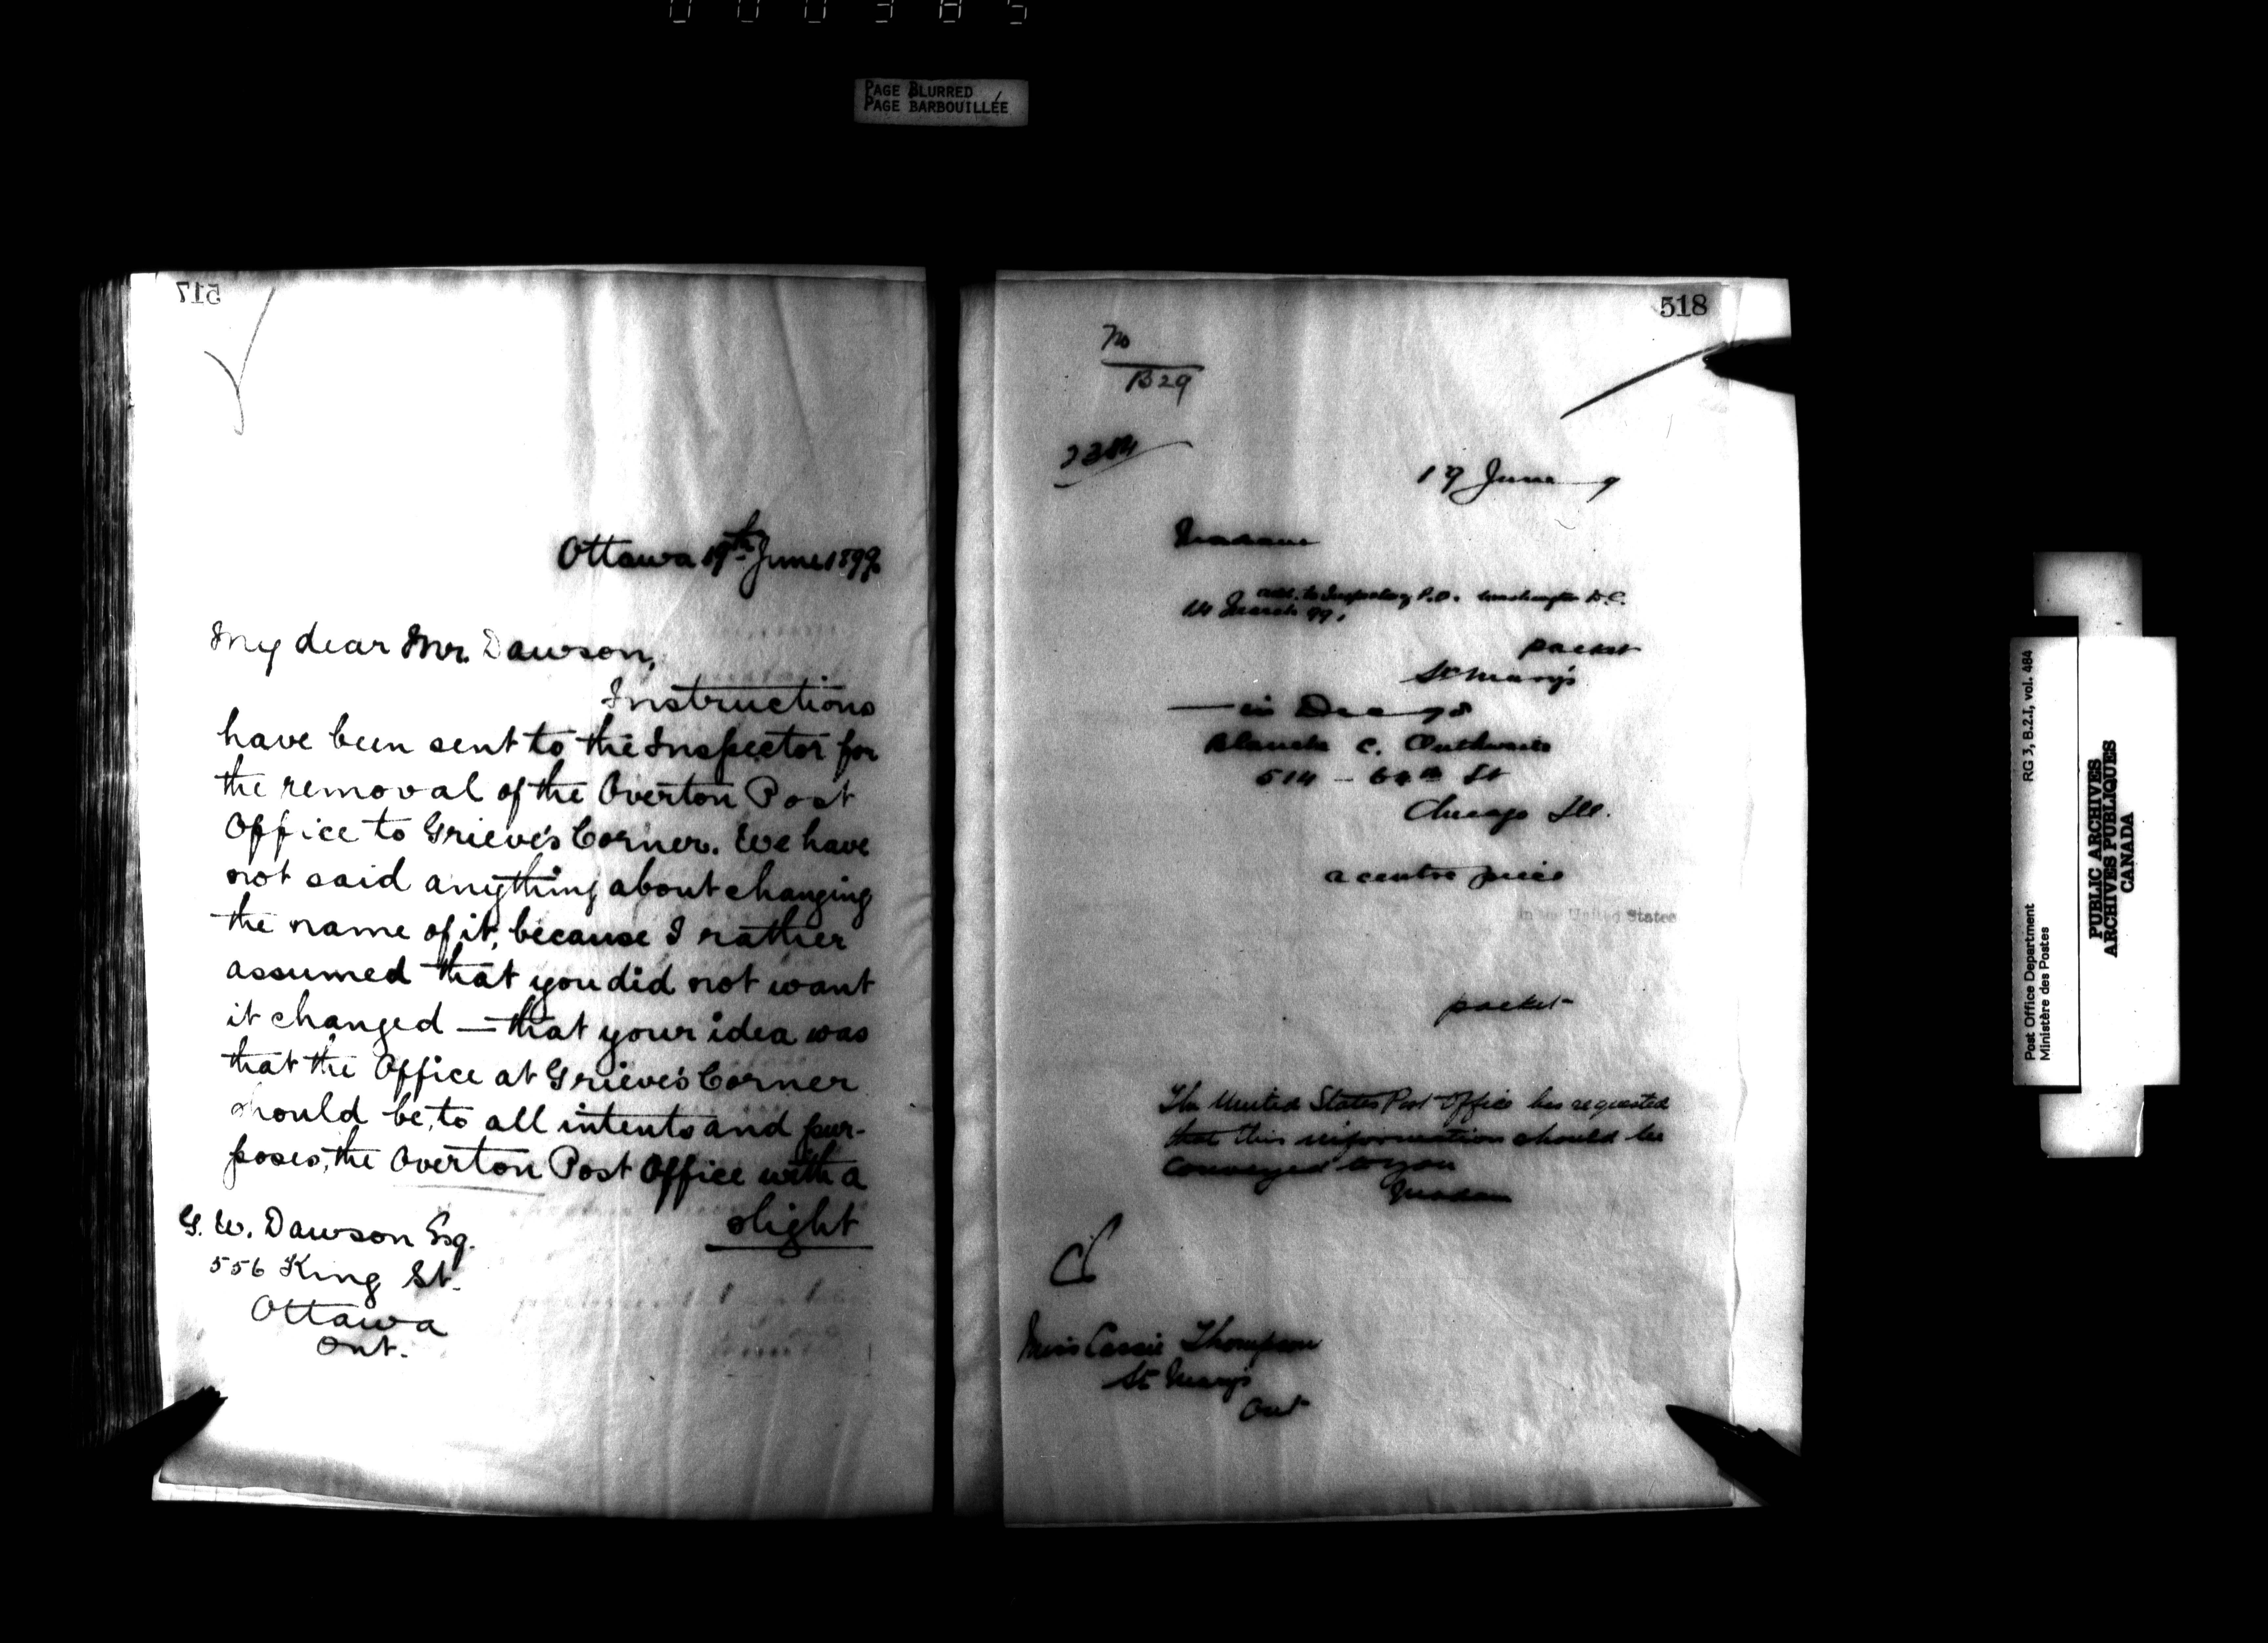 000385
PAGE BLURRED
PAGE BARBOUILLÉE
517
Ottawa 19th June 1899.
My dear Mr. Dawson,
Instructions
have been sent to the Inspector for
the removal of the Overton Post
Office to Grieve's Corner. We have
not said anything about changing
the name of it, because I rather
assumed that you did not want
it changed — that your idea was
that the Office at Grieve's Corner
should be, to all intents and pur-
poses, the Overton Post Office with a
slight
G. W. Dawson Esq.
556 King St.
Ottawa
Ont.
518
No
B29
17 June 9
Madam
P.O. Washington D.C.
14 March 99,
packet
St Mary's
— in Dec 98
Blanche C. Outhwaite
514 - 64th St
Chicago Ill.
a centre piece
in United States
packet
The United States Post Office has requested
that this information should be
conveyed to you
Madam
Miss Cassie Thompson
St Mary's
Ont
Post Office Department
Ministère des Postes
RG 3, B.2.I, vol. 484
PUBLIC ARCHIVES
ARCHIVES PUBLIQUES
CANADA